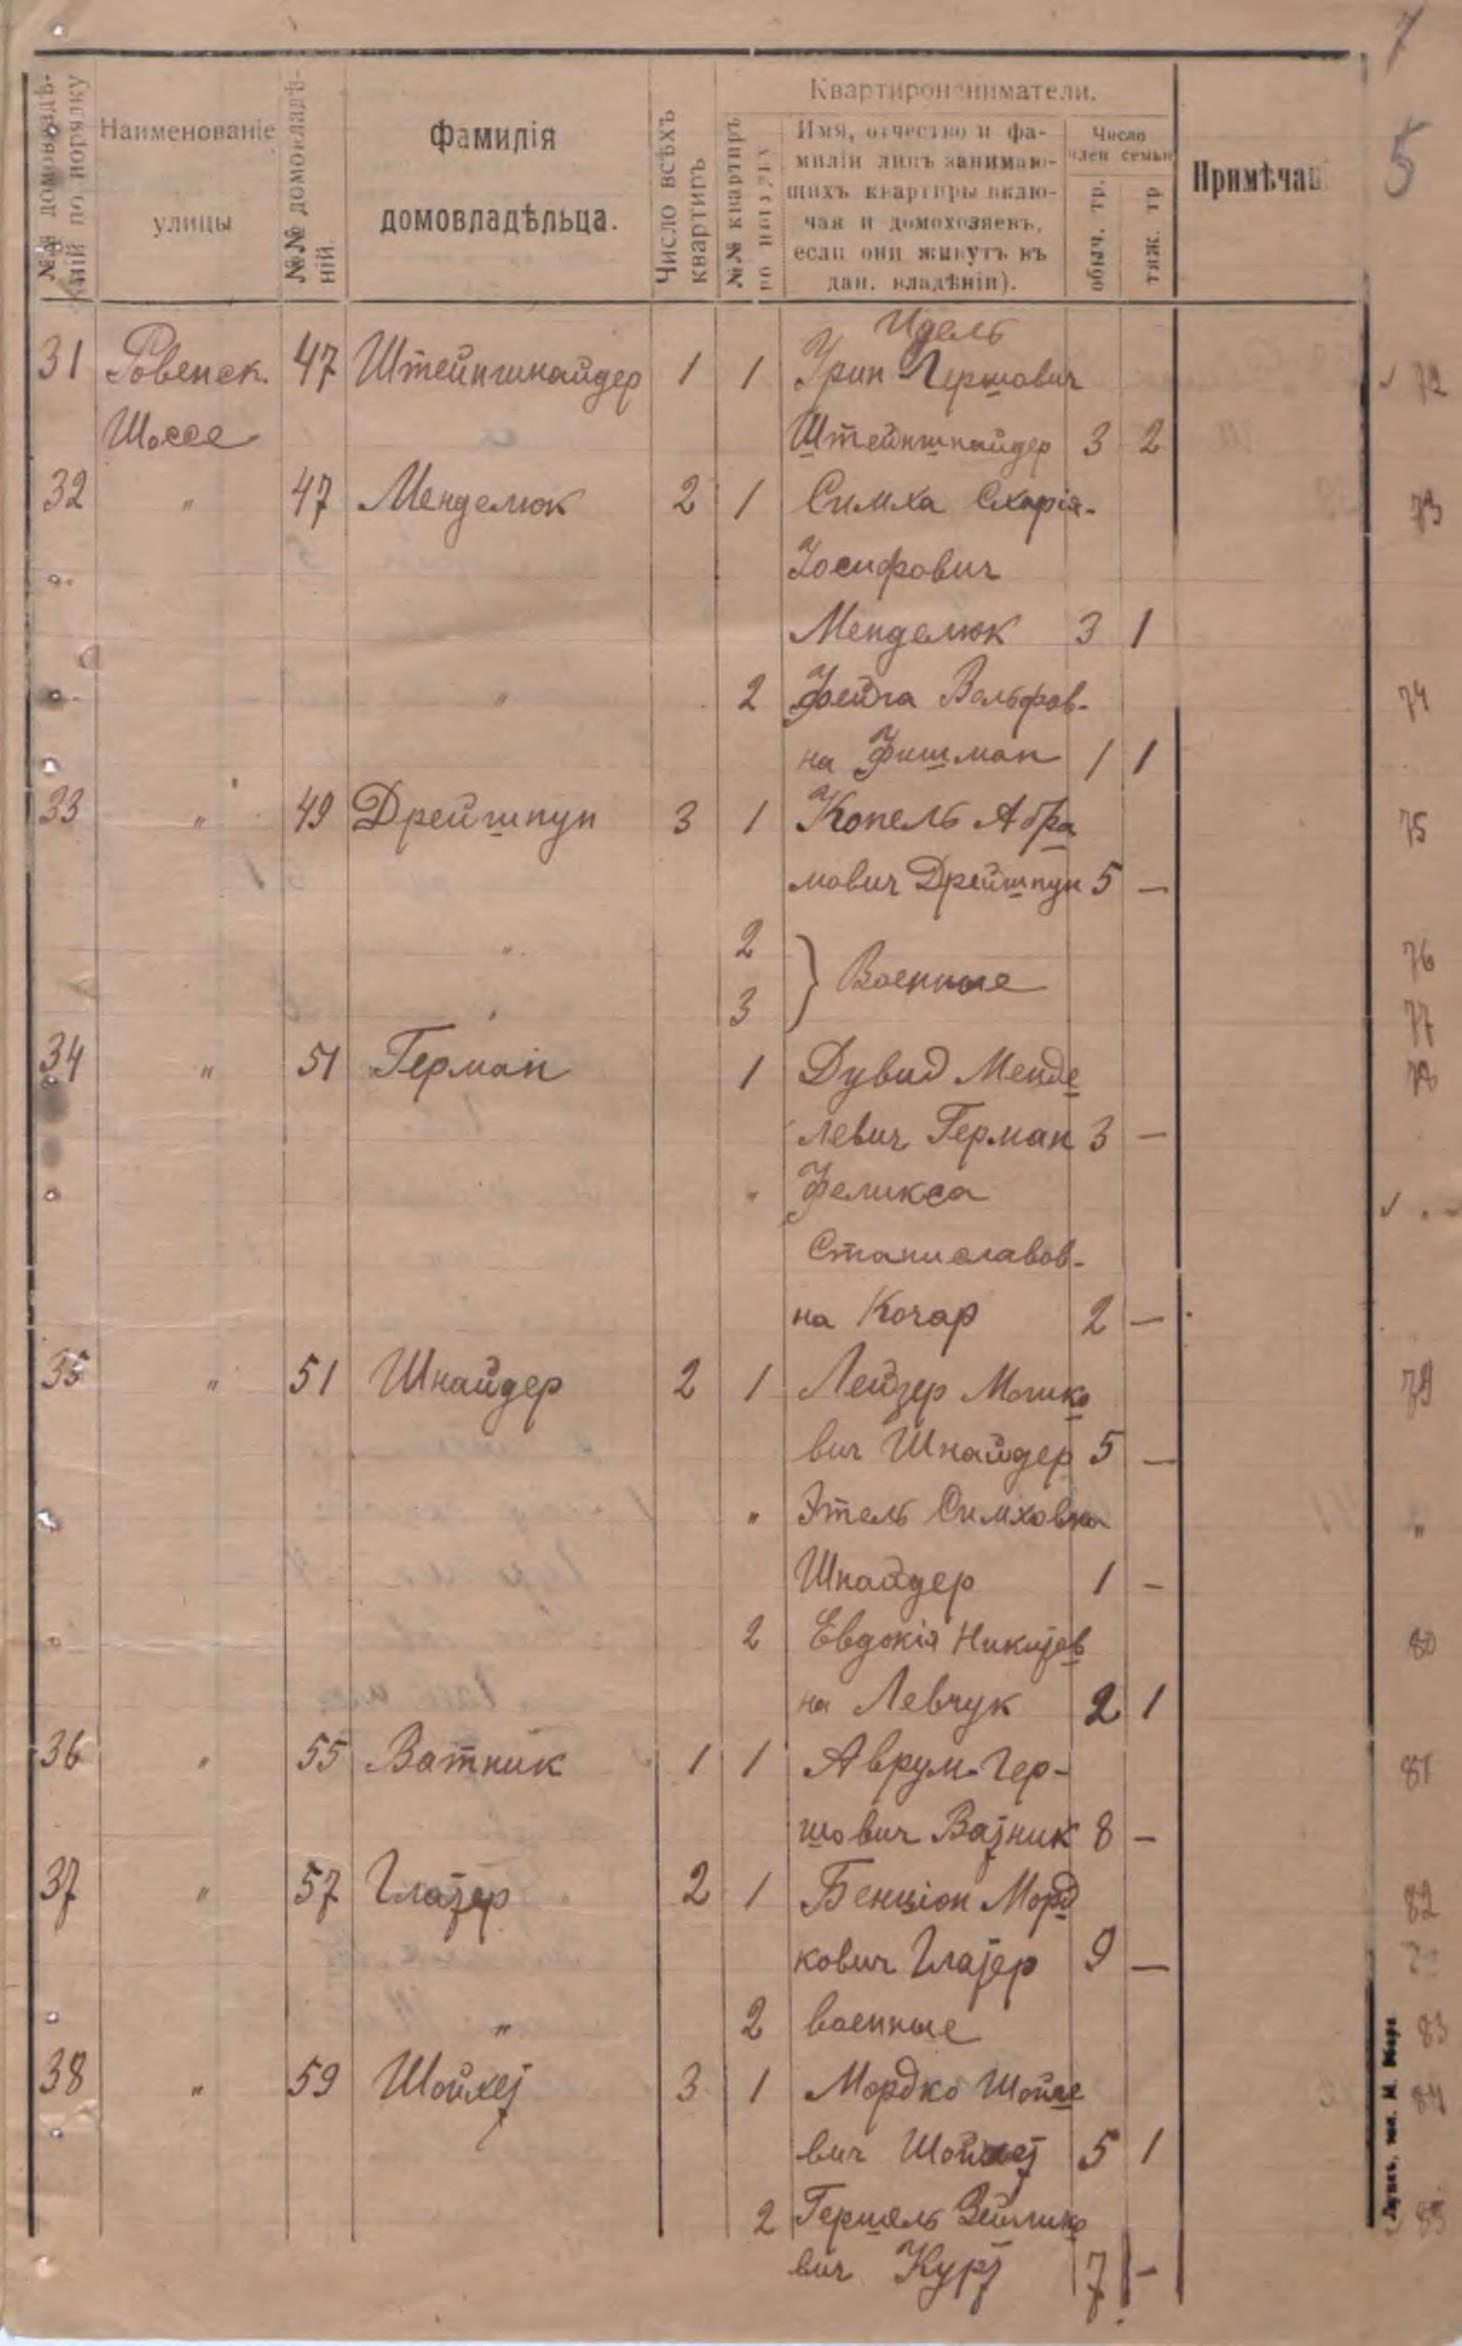 7
5
Квартиронаниматели.
№№ домовладѣ-
ній по порядку
Наименованіе
улицы
№№ домовладѣ-
ній.
Фамилія
домовладѣльца.
Число всѣхъ
квартиръ
№№ квартиръ
Имя, отчество и фа-
миліи лицъ занимаю-
щихъ квартиры вклю-
чая и домохозяевъ,
если они живутъ въ
дан. владѣніи).
Число
член семьи
обыч. тр.
тяж. тр
Примѣчан
Идель
31 Ровенск. 47 Штейншнайдер 1 1 Урин Гершович 72
Шоссе Штейншнайдер 3 2
32 " 47 Менделюк 2 1 Симха Схарія- 73
Іосифович
Менделюк 3 1
" 2 Фейга Вольфов- 74
на Фишман 1 1
33 " 49 Дрейшпун 3 1 Копель Абра 75
мович Дрейшпун 5 —
" 2 } Военные 76
" 3 77
34 " 51 Герман 1 Дувид Менде 78
левич Герман 3 —
" Феликса
Станиславов-
на Кочар 2 —
35 " 51 Шнайдер 2 1 Лейзер Мошко 79
вич Шнайдер 5 —
" Этель Симховна "
Шнайдер 1 -
2 Евдокія Никитов 80
на Левчук 2 1
36 " 55 Ватник 1 1 Аврум-Гер- 81
шович Ватник 8 —
37 " 57 Глазер 2 1 Бенціон Морд 82
кович Глазер 9 —
" 2 военные 83
38 " 59 Шойхет 3 1 Мордко Шойле 84
вич Шойхет 5 1
2 Гершель Зейлико 85
вич Курз 7 -
Луцкъ, тип.